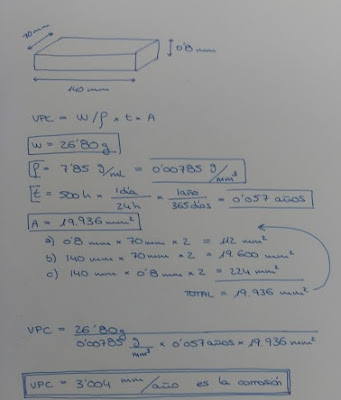 70mm
0'8 mm
140mm
VPC = W/ρ × t × A
W = 26'80g
ρ = 7'85 g/mL = 0'00785 g/mm³
t = 500h × 1día/24h × 1año/365días = 0'057 años
A = 19.936 mm²
a) 0'8 mm × 70mm × 2 = 112 mm²
b) 140 mm × 70mm × 2 = 19.600 mm²
c) 140 mm × 0'8 mm × 2 = 224 mm²
TOTAL = 19.936 mm²
VPC = 26'80g
0'00785 g/mm³ × 0'057años × 19.936 mm²
VPC = 3'004 mm/año es la corrosión